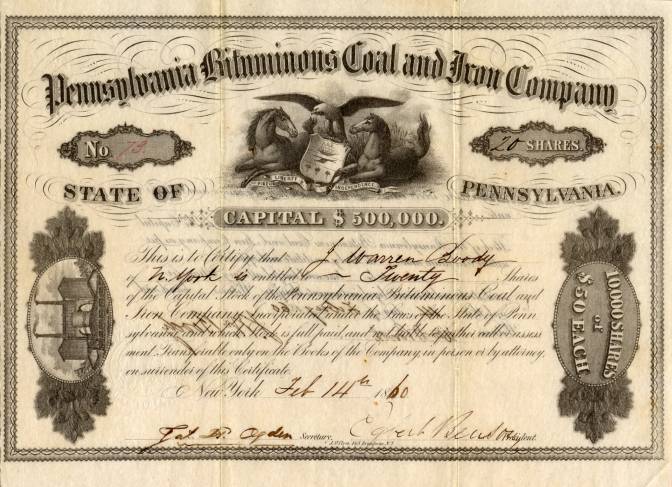 Pennsylvania Bituminous Coal and Iron Company
No 73
20 SHARES.
LIBERTY
INDEPENDENCE
STATE OF PENNSYLVANIA.
CAPITAL $ 500,000.
This is to Certify that J. Warren Boody
of N York is entitled to Twenty Shares
of the Capital Stock of the Pennsylvania Bituminous Coal and
Iron Company, Incorporated under the laws of the State of Penn
sylvania and which Stock is full paid, and not liable to further call or assess
ment. Transferable only on the Books of the Company, in person or by attorney,
on surrender of this Certificate.
10,000 SHARES
of
$50 EACH
New York Feb 14th 1860
Ogden Secretary.
President.